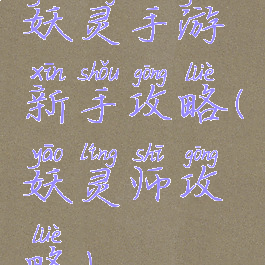 妖灵手游
xīn shǒu gōng lüè
新手攻略(
yāo líng shī gōng
妖灵师攻
lüè
略)